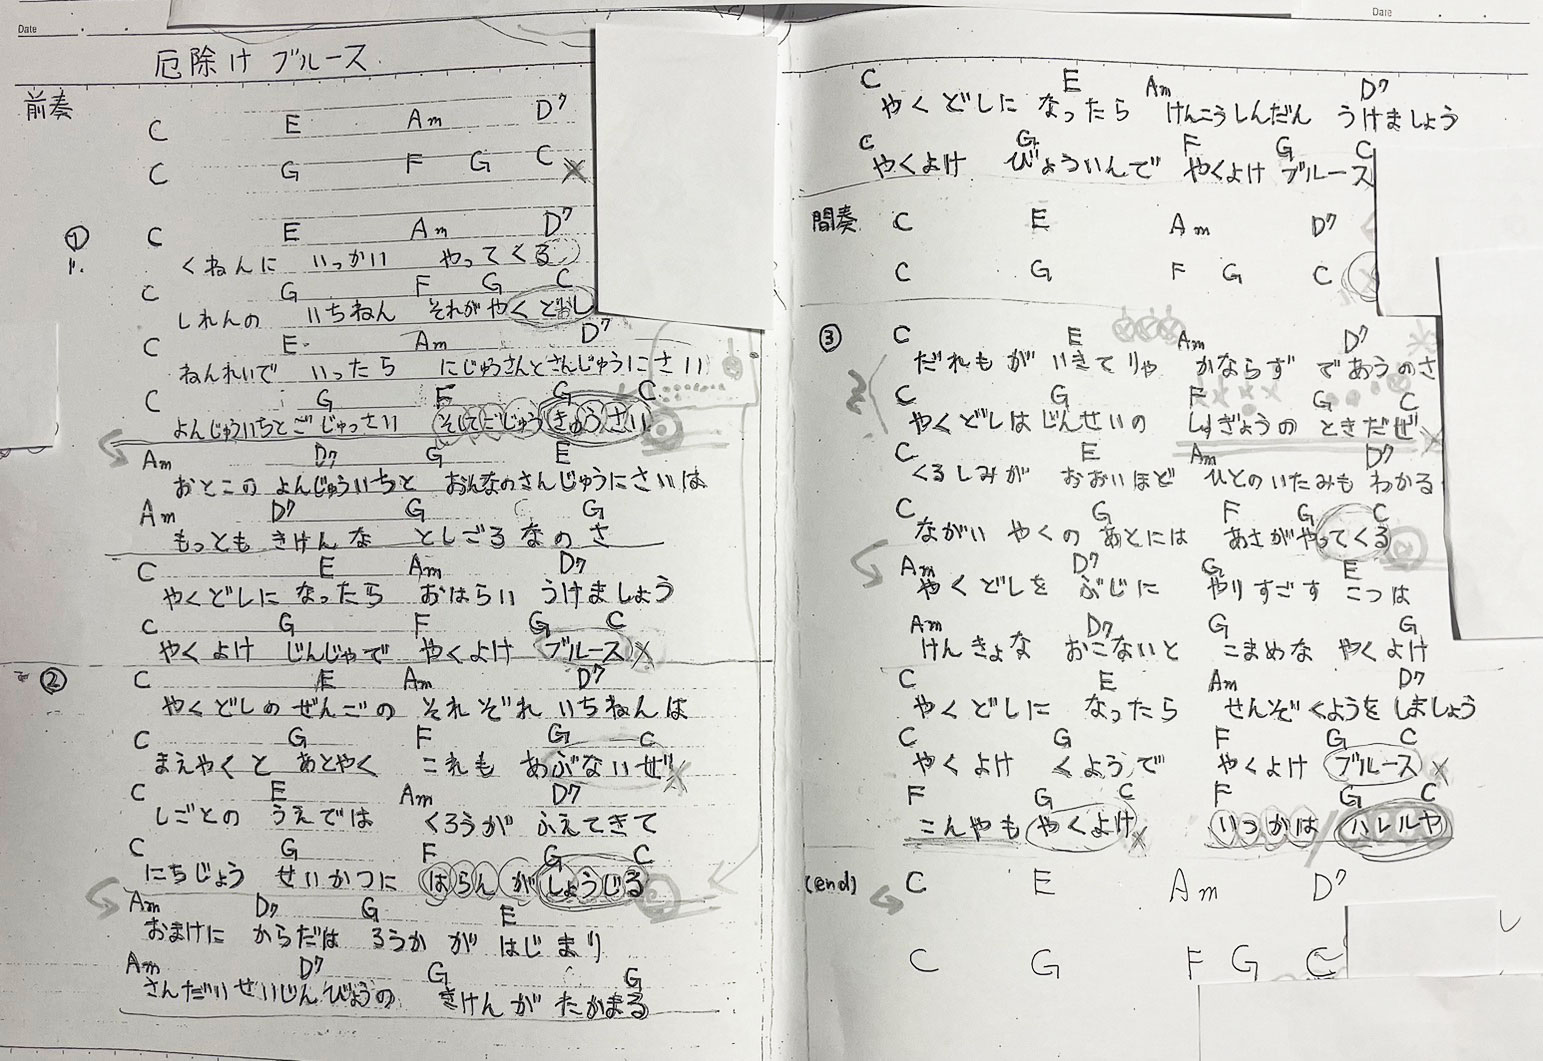 Date
厄除け ブルース
前奏
C E Am D7
C G F G C
① C E Am D7
くねんに いっかい やってくる
C G F G C
しれんの いちねん それがやくどおし
C E Am D7
ねんれいで いったら にじゅうさんとさんじゅうにさい
C G F G C
よんじゅういちとごじゅっさい そしてごじゅうきゅうさい
Am D7 G E
おとこの よんじゅういちと おんなのさんじゅうにさいは
Am D7 G G
もっとも きけんな としごろなのさ
C E Am D7
やくどしに なったら おはらい うけましょう
C G F G C
やくよけ じんじゃで やくよけ ブルース
② C E Am D7
やくどしのぜんごの それぞれ いちねんは
C G F G C
まえやくと あとやく これも あぶないぜ
C E Am D7
しごとの うえでは くろうが ふえてきて
C G F G C
にちじょう せいかつに はらんが しょうじる
Am D7 G E
おまけに からだは ろうかが はじまり
Am D7 G G
さんだいせいじんびょうの きけんが たかまる
Date
C E Am D7
やくどしに なったら けんこうしんだん うけましょう
C G F G C
やくよけ びょういんで やくよけ ブルース
間奏 C E Am D7
C G F G C
③ C E Am D7
だれもが いきてりゃ かならず であうのさ
C G F G C
やくどしは じんせいの しゅぎょうの ときだぜ
C E Am D7
くるしみが おおいほど ひとのいたみも わかる
C G F G C
ながい やくの あとには あさがやってくる
Am D7 G E
やくどしを ぶじに やりすごす こつは
Am D7 G G
けんきょな おこないと こまめな やくよけ
C E Am D7
やくどしに なったら せんぞくようを しましょう
C G F G C
やくよけ くようで やくよけ ブルース
F G C F G C
こんやも やくよけ いつかは ハレルヤ
(end) C E Am D7
C G F G C